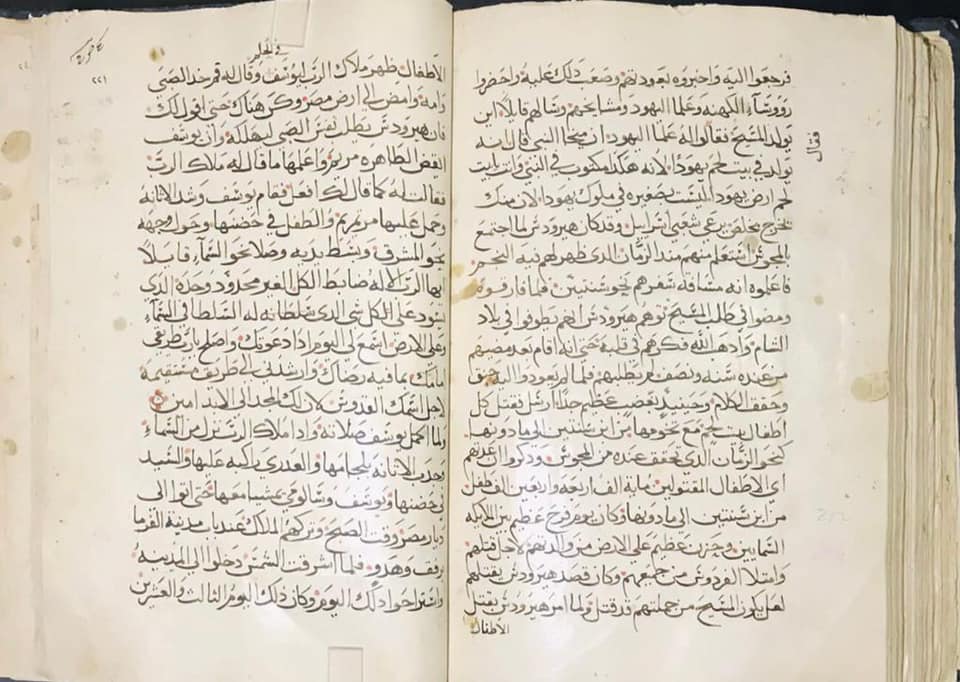 فرجعوا اليه واخبروه بعودتهم وصعب ذلك عليه واحضروا
روؤساء الكهنه وعلما اليهود ومشايخهم وسالهم قايلا اين
يولد المسيح فقالوا له علما اليهود ان ميخا النبي قال انه
يولد في بيت لحم يهودا لانه هكذا مكتوب في النبي وانت يابيت
لحم ارض يهودا لست بصغيره في ملوك يهودا لان منك
يخرج مخلص يرعى شعبي اسراييل وقد كان هيرودس لما اجتمع
بالمجوس استعلم منهم منذ الزمان الذي ظهر لهم فيه النجم
فاعلموه انه مسافة سفرهم نحو سنتين فلما فارقوه
ومضوا في طلب المسيح توهم هيرودس انهم يطوفوا في بلاد
الشام وادهله الله فكرهم في قلبه حتى انه اقام بعد مضيهم
من عنده سنه ونصف لم يطلبهم فلما لم يعودوا اليه حنق
وحقق الكلام وحينيذ بغضب عظيم جدا ارسل فقتل كل
اطفال بيت لحم مع تخومها من ابن سنتين الى ما دونها
كنحو الزمان الذي تحقق عنده من المجوس وذكروا ان عدتهم
اي الاطفال المقتولين ماية الف اربعه واربعين الف طفل
من ابن سنتين الى ما دونها وكان يوم فرح عظيم بين الملايكه
السماييين وحزن عظيم على الارض من والدتهم لاجل قتلهم
وامتلا الفردوس من جميعهم وكان قصد هيرودس بقتلهم
لعل يكون المسيح من جملتهم قد قتل ولما امر هيرودس بقتل
الاطفال
فقال
٢٢١
في الحلم
الاطفال ظهر ملاك الرب ليوسف وقال له قم خد الصبى
وامه وامض الي ارض مصر وكن هناك حتى اقول لك
فان هيرودس يطلب نفس الصبى ليهلكه وان يوسف
ايقض الطاهره مريم واعلمها ما قال له ملاك الرب
فقالت له كما قال لك افعل فقام يوسف وشد الاتانه
وحمل عليها مرتمريم والطفل في حضنها وحول وجهه
نحو المشرق وبسط يديه وصلا نحو السماء قايلا
ايها الرب الاله ضابط الكل الغير محدود وحده الذي
يسود على الكل شي الذي سلطانه له السلطا في السماء
وعلى الارض استمع لي اليوم اذا دعوتك واصلح يارب طريقي
امامك بما فيه رضاك وارشدني الي طريق مستقيمه
لاجل اسمك القدوس لان لك المجد الى الابد امين
ولما اكمل يوسف صلاته واذا ملاك الرب نزل من السماء
وجذب الاتانه بلجامها والعدرى راكبه عليها والسيد
في حضنها ويوسف وسالومي يمشيا معها حتى اتوا الى
ديار مصر وقت الصبح وتركهم الملاك عند باب مدينة الفرما
برفق وهدو فلما اشرقت الشمس دخلوا الى المدينه
واستراحوا ذلك اليوم وكان ذلك اليوم الثالث والعشرين